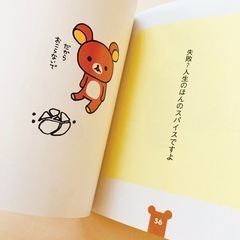 だから
おこらないで
失敗？人生のほんのスパイスですよ
56